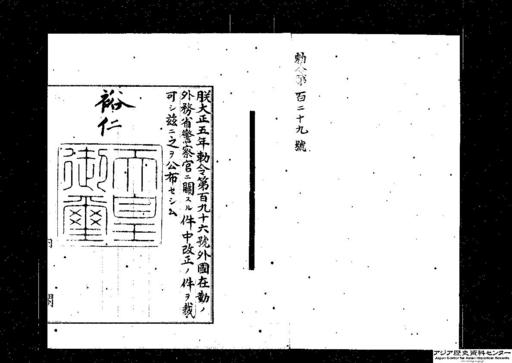 勅令第百二十九號
朕大正五年勅令第百九十六號外國在勤ノ
外務省警察官ニ關スル件中改正ノ件ヲ裁
可シ茲ニ之ヲ公布セシム
裕仁
天皇
御璽
内
閣
アジア歴史資料センター
Japan Center for Asian Historical Records